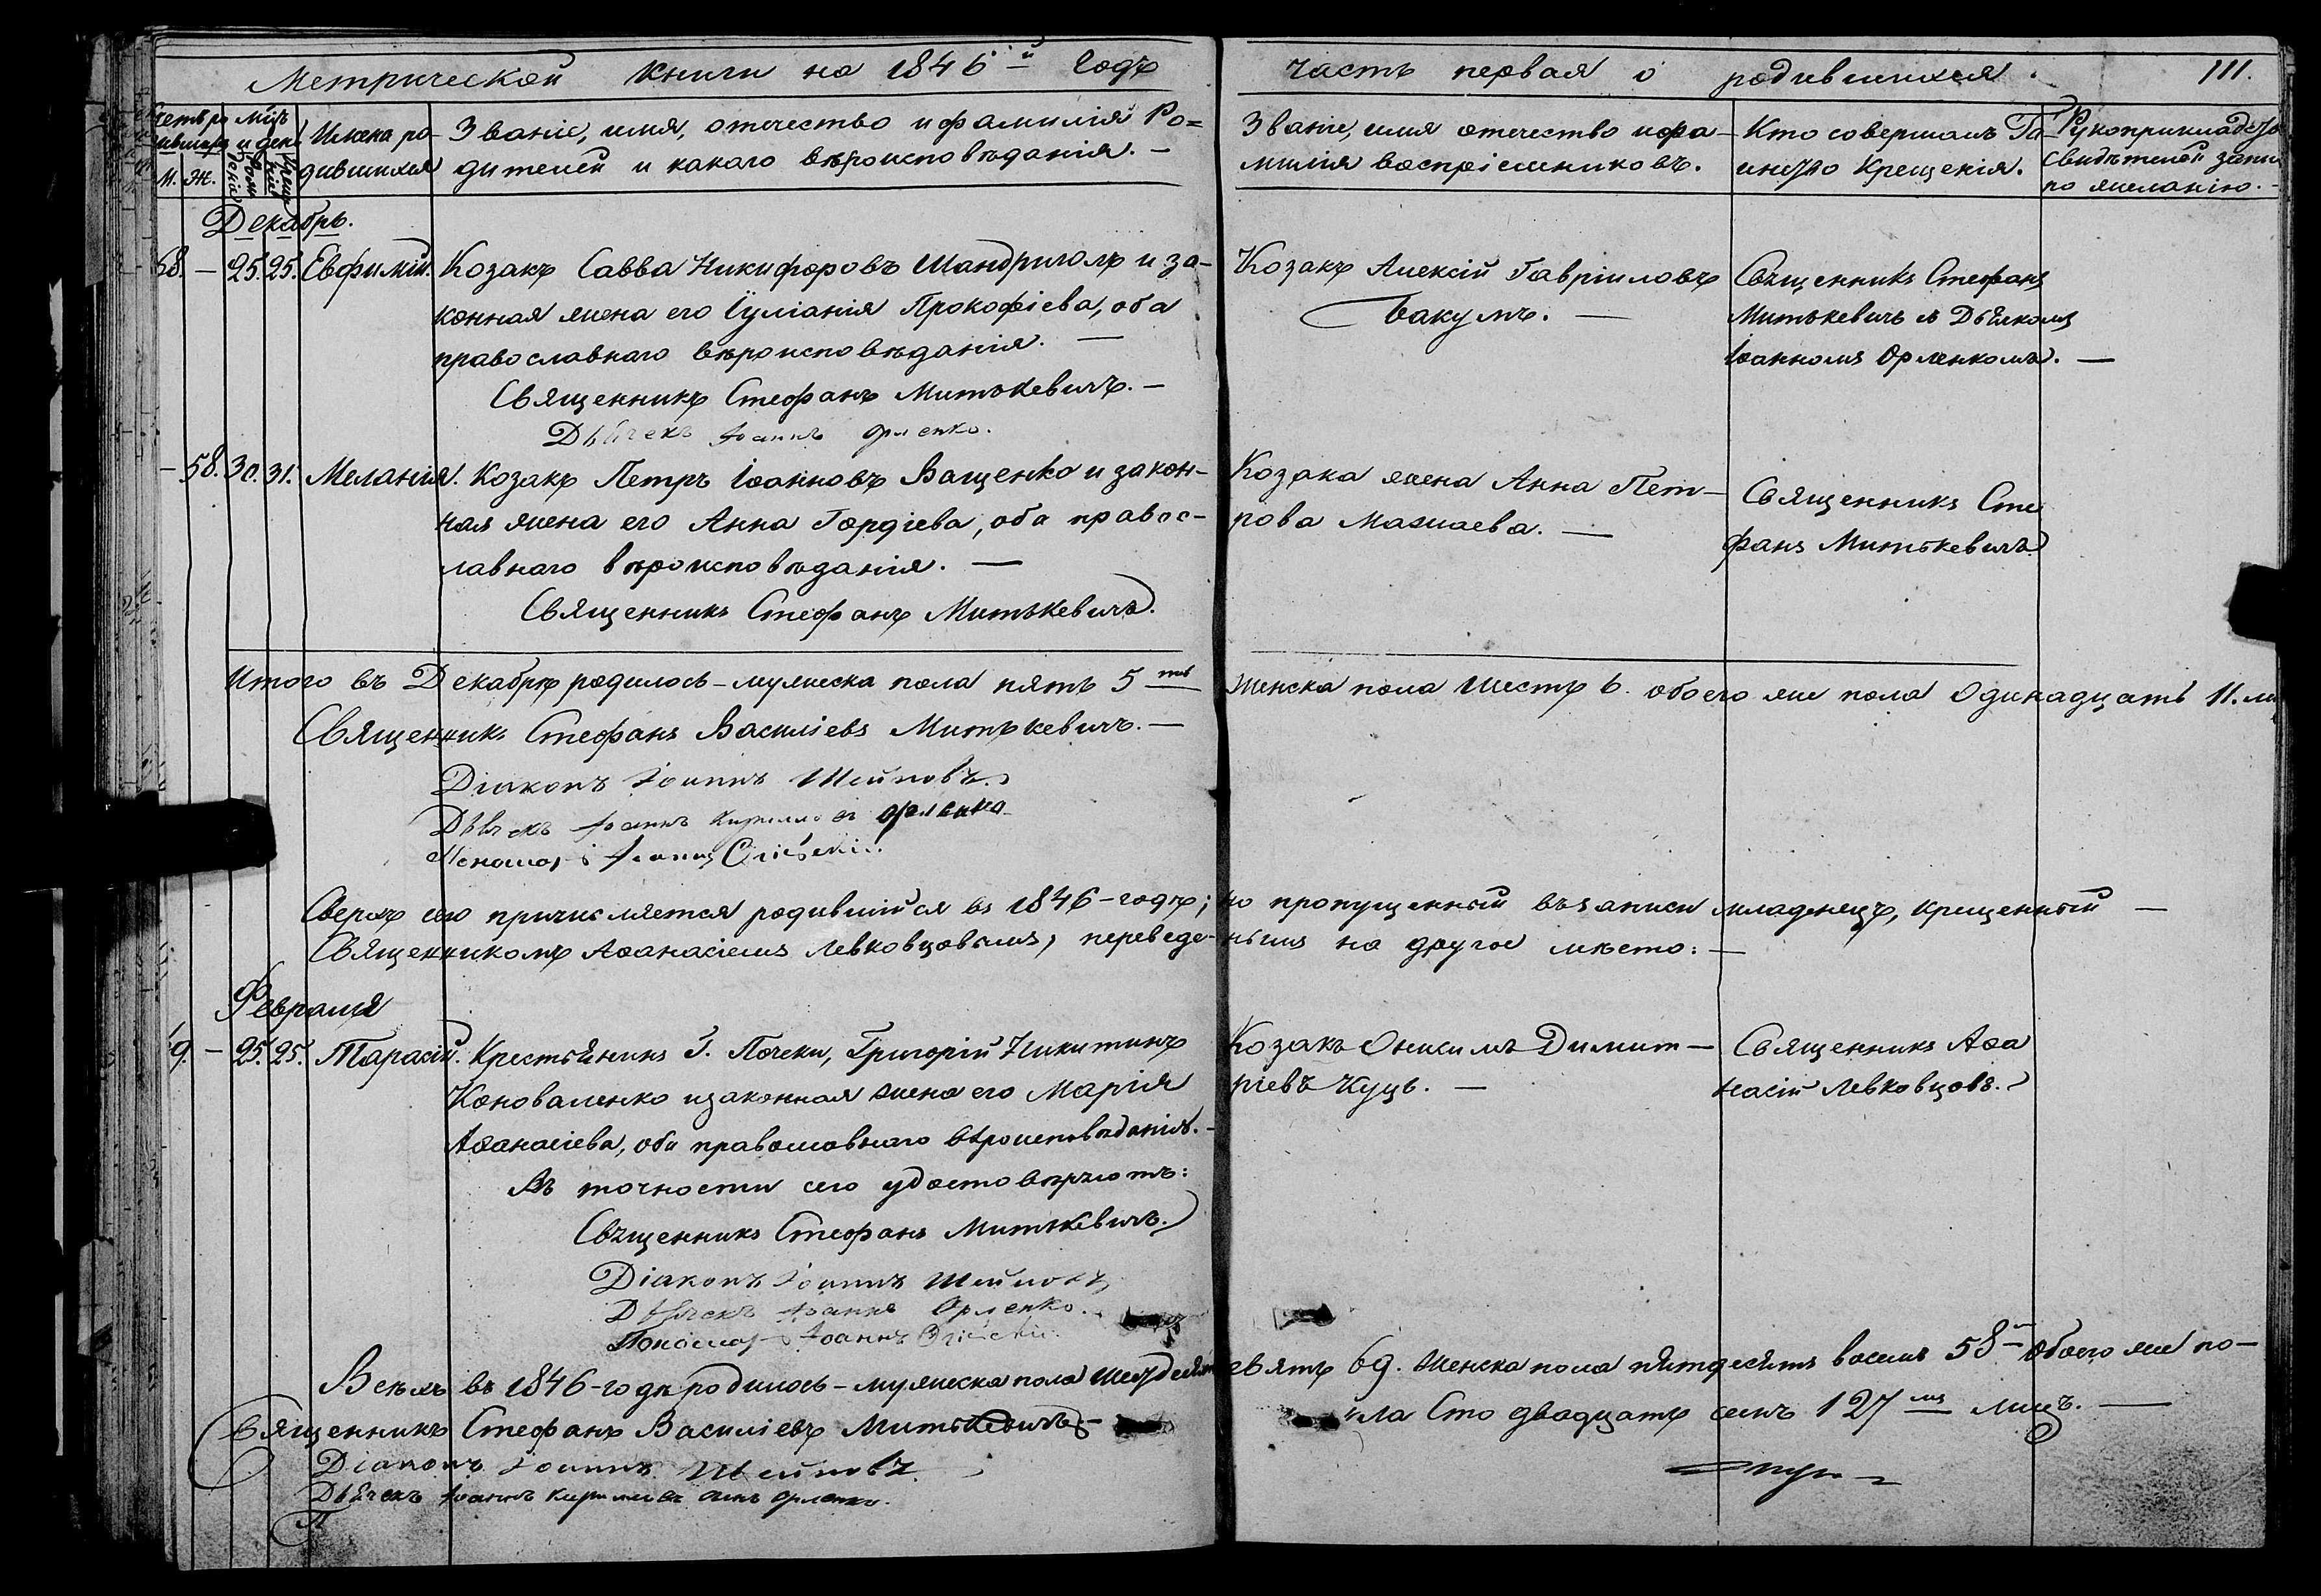 Метрической книги на 1846й Годъ
часть первая о родившихся.
111.
М. Ж.
Имена родившихся
Званіе, имя, отчество и фамилія Ро=
дителей и какого вѣроисповѣданія. —
Званіе, имя отчество и фа-
милія воспріемниковъ.
Кто совершалъ Та-
инство Крещенія.
Рукоприкладство
свидѣтелей записи
по желанію. -
Декабрь.
68. — 25. 25. Евфимій. Козакъ Савва Никифоровъ Шандриголъ и за-
конная жена его Іуліанія Прокофіева, оба
православнаго вѣроисповѣданія. —
Священникъ Стефанъ Митькевичъ. —
Дьячекъ Іоаннъ Орленко.
Козакъ Алексій Гавріиловъ
Бакумъ. —
Священникъ Стефанъ
Митькевичъ съ Дьячкомъ
Іоанномъ Орленкомъ. —
— 58. 30. 31. Меланія. Козакъ Петръ Іоанновъ Ващенко и закон-
ная жена его Анна Гордіева, оба правос-
лавнаго вѣроисповѣданія. —
Священникъ Стефанъ Митькевичъ.
Козака жена Анна Пет-
рова —
Священникъ Сте
фанъ Митькевичъ
Итого въ Декабрѣ родилось - мужеска пола пять 5ть женска пола шесть 6. обоего же пола Одинадцать 11.
Священникъ Стефанъ Василіевъ Митькевичъ. —
Діаконъ Іоаннъ
Дьячекъ Іоаннъ Кириловъ Орленко
Пономарь Іоаннъ
Сверхъ сего причисляется родившійся въ 1846-годѣ; но пропущенный въ записи младенецъ, крещенный —
Священникомъ Аѳанасіемъ Левковцовымъ, переведеннымъ на другое мѣсто: —
Февраля
— 25. 25. Тарасій. Крестьянинъ Г. Почеки, Григорій Никитинъ
Коноваленко и законная жена его Марія
Аѳанасіева, оба православнаго вѣроисповѣданія. -
Въ точности сего удостовѣряютъ:
Священникъ Стефанъ Митькевичъ.
Діаконъ Іоаннъ
Дьячекъ Іоаннъ Орленко.
Пономарь Іоаннъ
Козакъ Онисимъ Димит-
ріевъ Куцъ. —
Священникъ Аѳа
насій Левковцовъ.
Всѣхъ въ 1846-годѣ родилось - мужеска пола шестьдесятъ девять 69. женска пола пятдесятъ восемь 58 Обоего же по-
ла Сто двадцать семь 127мь лицъ. —
Священникъ Стефанъ Василіевъ Митькевичъ —
Діаконъ Іоаннъ
Дьячекъ Іоаннъ Кириловъ сынъ Орленко.
П